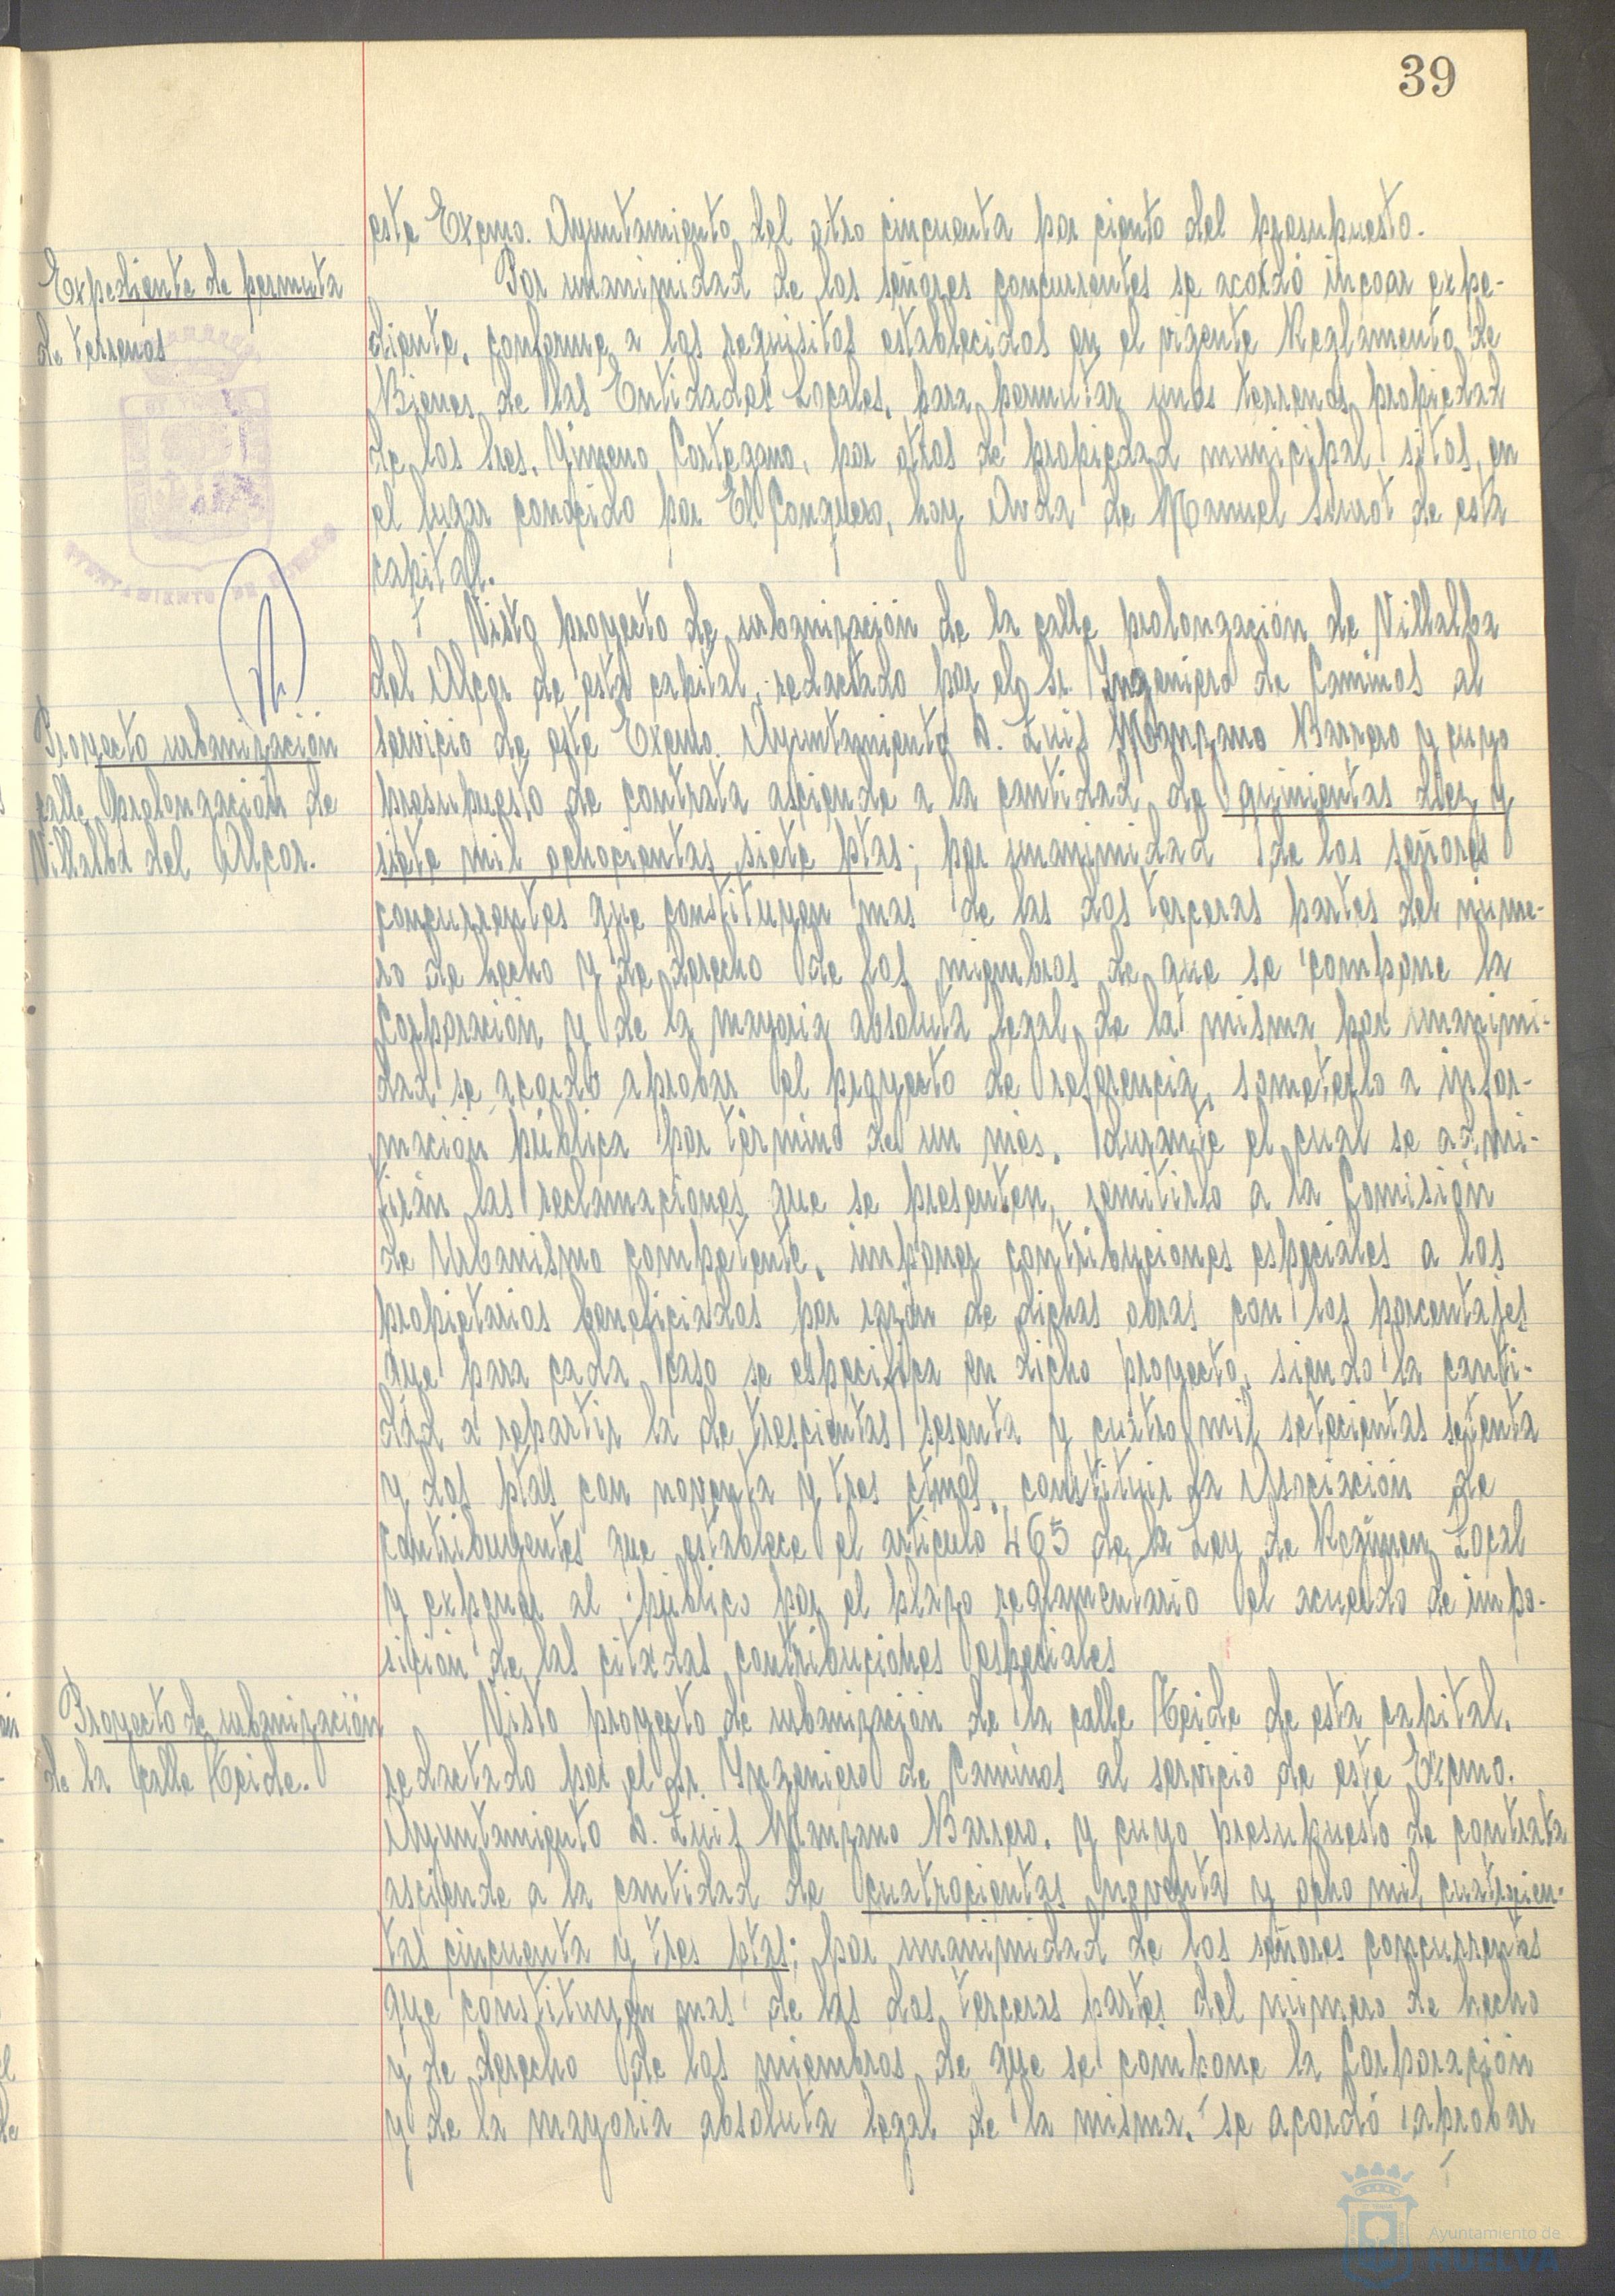 39
este Excmo. Ayuntamiento del otro cincuenta por ciento del presupuesto.
Expediente de permuta
de terrenos
Por unanimidad de los señores concurrentes se acordó incoar expe-
diente, conforme a los requisitos establecidos en el vigente Reglamento de
Bienes de las Entidades Locales, para permutar unos terrenos propiedad
de los Sres. Gimeno Cortegano, por otros de propiedad municipal sitos en
el lugar conocido por El Conquero, hoy Avda de Manuel Siurot de esta
capital.
AYUNTAMIENTO DE
Proyecto urbanización
calle prolongación de
Villalba del Alcor.
Visto proyecto de urbanización de la calle prolongación de Villalba
del Alcor de esta capital, redactado por el Sr. Ingeniero de Caminos al
servicio de este Excmo. Ayuntamiento D. Luis Manzano Barrero y cuyo
presupuesto de contrata asciende a la cantidad de quinientas diez y
siete mil ochocientas siete ptas; por unanimidad de los señores
concurrentes que constituyen mas de las dos terceras partes del núme-
ro de hecho y de derecho de los miembros de que se compone la
Corporación y de la mayoria absoluta legal de la misma por unanimi-
dad se acordó aprobar el proyecto de referencia, someterlo a infor-
mación pública por término de un mes, durante el cual se admi-
tirán las reclamaciones que se presenten, remitirlo a la Comisión
de Urbanismo competente, imponer contribuciones especiales a los
propietarios beneficiados por razón de dichas obras con los porcentajes
que para cada caso se especifica en dicho proyecto, siendo la canti-
dad a repartir la de trescientas sesenta y cuatro mil setecientas setenta
y dos ptas con noventa y tres ctmos, constituir la Asociación de
Contribuyentes que establece el articulo 465 de la Ley de Regimen Local
y exponer al público por el plazo reglamentario el acuerdo de impo-
sición de las citadas contribuciones especiales
Proyecto de urbanización
de la calle Teide.
Visto proyecto de urbanización de la calle Teide de esta capital,
redactado por el Sr. Ingeniero de Caminos al servicio de este Excmo.
Ayuntamiento D. Luis Manzano Barrero, y cuyo presupuesto de contrata
asciende a la cantidad de cuatrocientas noventa y ocho mil cuatrocien-
tas cincuenta y tres ptas; por unanimidad de los señores concurrentes
que constituyen mas de las dos terceras partes del número de hecho
y de derecho de los miembros de que se compone la Corporación
y de la mayoria absoluta legal de la misma, se acordó aprobar
Ayuntamiento de
HUELVA